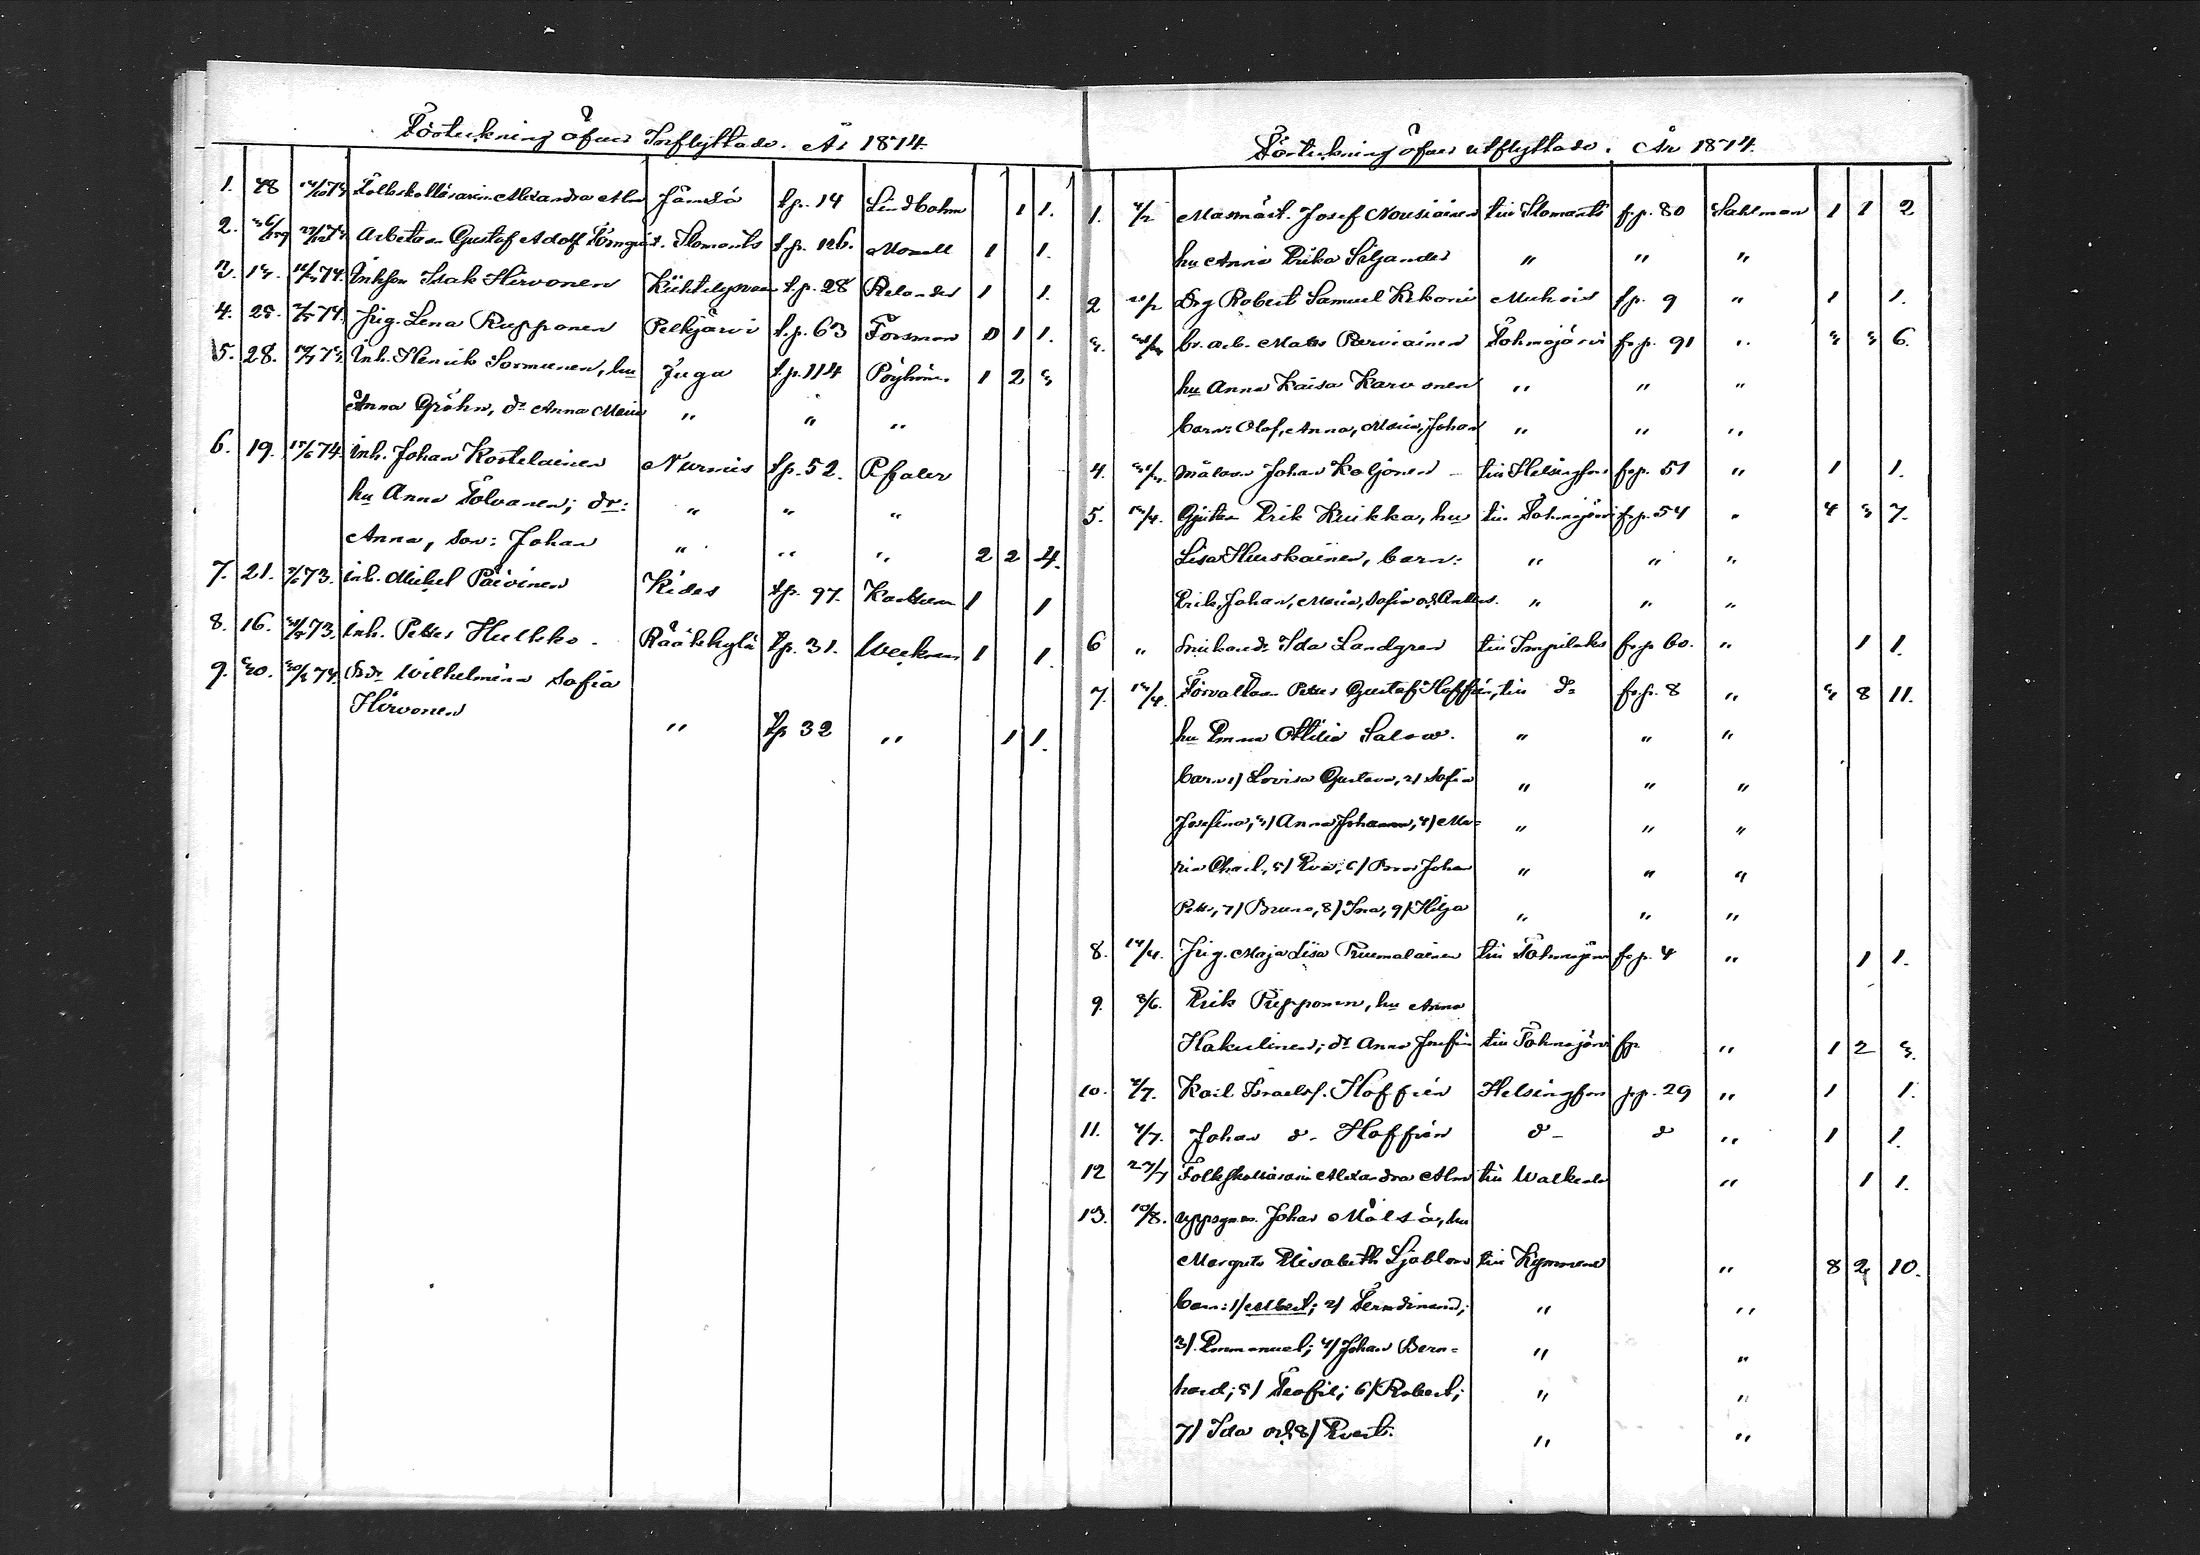 Förteckning öfver Inflyttade. År 1874.
1. 48 Folkskollärarin Alexandra Alm Jämsä t.p. 14 Lindbohm 1 1.
2. Arbetaren Gustaf Adolf Törnqvist. Ilomants t.p. 126. Monell 1 1.
3. 13. Inhsen Isak Hirvonen Kiihtelysvaara t.p. 28 Relander 1 1.
4. 25. 74. Pig. Lena Rupponen Pelkjärvi t.p. 63 Forsman 0 1 1.
5. 28. Inh. Henrik Sormunen, hu Juga t.p. 114 Pöyhönen 1 2 3
Anna Gröhn, dr Anna Maria " " "
6. 19. 15/6 74. inh. Johan Kostelainen Nurmis t.p. 52. Pfaler
hu Anna Tolvanen; dr: " " "
Anna, son: Johan " " " 2 2 4.
7. 21. 73. inh. Mickel Päivinen Kides t.p. 97. 1 1
8. 16. 73. inh. Petter Hulkko. Rääkkylä t.p. 31. Weckman 1 1.
9. 30. 74. Wilhelmina Sofia
Hirvonen " t.p 32 " 1 1.
Förteckning öfver utflyttade. År 1874.
1. Masmäst. Josef Nousiainen till Ilomants fr.p. 80 Sahlman 1 1 2
hu Anna Erika Siljander " " "
2 Drg Robert Samuel Kekoni Muhois fp. 9 " 1 1.
3. br. arb. Mats Parviainen Tohmajärvi fr.p. 91 " 3 3 6.
hu Anna Kaisa Karvonen " " "
barn: Olof, Anna, Maria, Johan " " "
4. målaren Johan Koljonen till Helsingfors fr.p. 51 " 1 1.
5. Gjutaren Erik Kukka, hu till Tohmajärvi fr.p. 54 " 4 3 7.
Lisa Huskainen, barn: " " "
Erik, Johan, Maria, Sofia och Anders. " " "
6 " Snickaredr Ida Landgren till Impilaks fr.p 60. " 1 1.
7. Förvaltaren Petter Gustaf Hoffrén, till do fr.p. 8 " 3 8 11.
hu Emma Ottilia Salow. " " "
barn 1/ Lovisa Gustava, 2/ Sofia " " "
Josefina, 3/ Anna Johanna, 4/ Ma= " " "
ria Charl., 5/ Eva, 6/ Johan " " "
Petter, 7/ Bruno, 8/ Ina, 9/ Hilja " " "
8. 14/4. Pig. Maja Lisa Ruumalainen till Tohmajärvi fr.p. 4 " 1 1.
9. 8/6. Erik Pupponen, hu Anna
Hakulinen; dr Anna Josefina till Tohmajärvi frp " 1 2 3.
10. Karl Israelsf. Hoffrén Helsingfors p.p. 29 " 1 1.
11. Johan d. Hoffrén d d " 1 1.
12 27/7 Folkskollärarin Alexandra Alm till Walkeala " 1 1.
13. 10/8. uppsynm. Johan Mälsä, hu
Margreta Elisabeth Sjöblom till Kymmene " 8 2 10.
barn: 1/ Albert; 2/ Ferndinand; " "
3/. Emmanuel; 4/ Johan Bern= " "
hard; 5/ Teofil; 6/ Robert; " "
7/ Ida och 8/ Evert. " "